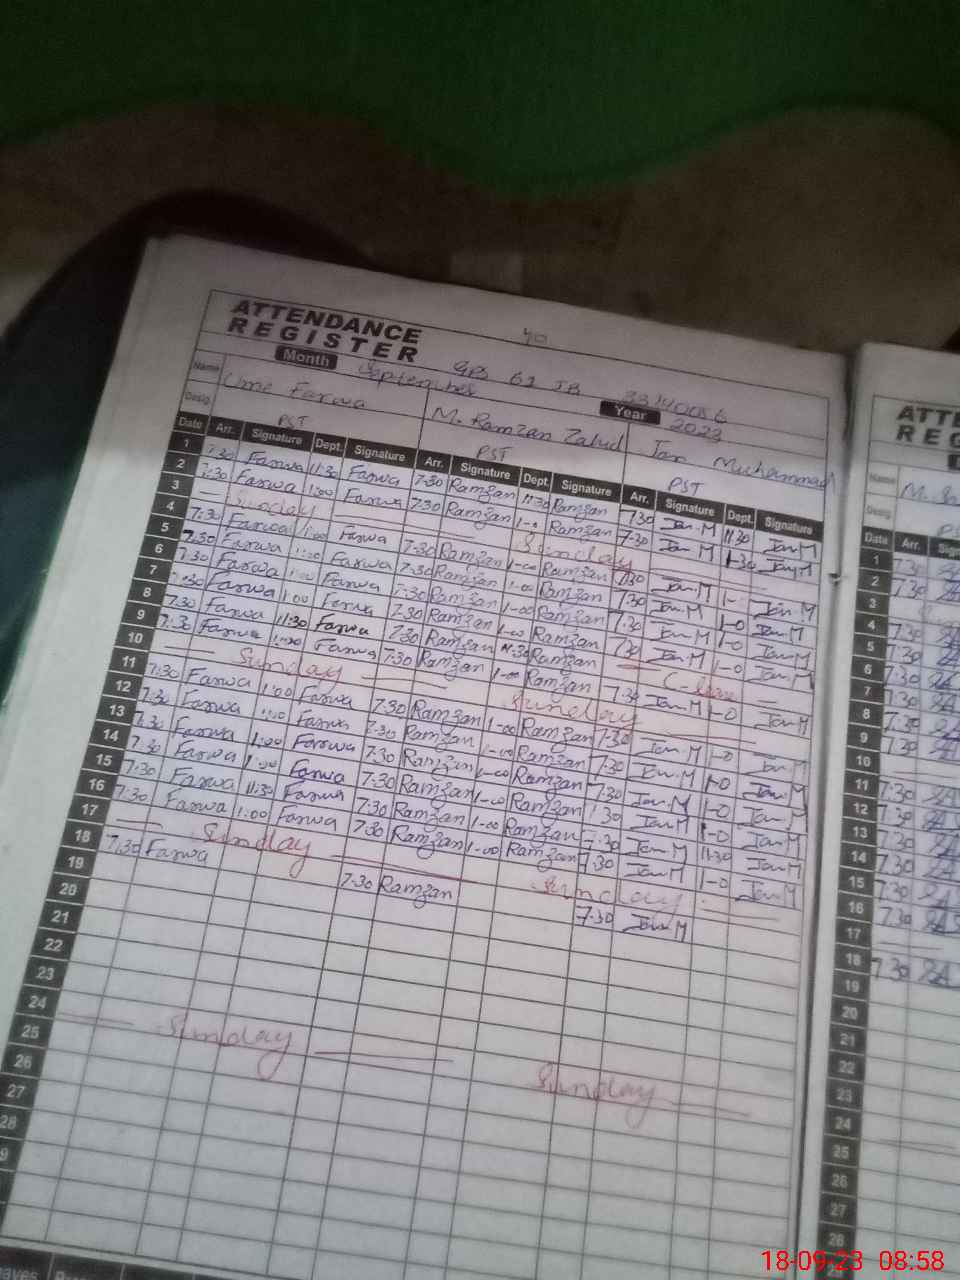 40
ATTENDANCE
REGISTER
Month September GPS 61 JB 33140056
Year 2023
Name Ume Farwa M. Ramzan Zahid Jan Muhammad
Desig. PST PST PST
Date Arr. Signature Dept. Signature Arr. Signature Dept. Signature Arr. Signature Dept. Signature
1 7:30 Farwa 11:30 Farwa 7:30 Ramzan 11:30 Ramzan 7:30 Jan.M 11:30 Jan.M
2 7:30 Farwa 1:00 Farwa 7:30 Ramzan 1-0 Ramzan 7:30 Jan M 1-30 Jan.M
3 Sunday Sunday
4 7:30 Farwa 1:00 Farwa 7:30 Ramzan 1-00 Ramzan 7:30 Jan.M 1-0 Jan.M
5 7:30 Farwa 1:00 Farwa 7:30 Ramzan 1-00 Ramzan 7:30 Jan.M 1-0 Jan.M
6 7:30 Farwa 1:00 Farwa 7:30 Ramzan 1-00 Ramzan 7:30 Jan.M 1-0 Jan.M
7 7:30 Farwa 1:00 Farwa 7:30 Ramzan 1-00 Ramzan 7:30 Jan.M 1-0 Jan.M
8 7:30 Farwa 11:30 Farwa 7:30 Ramzan 11:30 Ramzan
9 7:30 Farwa 1:00 Farwa 7:30 Ramzan 1-00 Ramzan 7:30 Jan.M 1-0 Jan.M
10 Sunday Sunday
11 7:30 Farwa 1:00 Farwa 7:30 Ramzan 1-00 Ramzan 7:30 Jan.M 1-0 Jan.M
12 7:30 Farwa 1:00 Farwa 7:30 Ramzan 1-00 Ramzan 7:30 Jan.M 1-0 Jan.M
13 7:30 Farwa 1:00 Farwa 7:30 Ramzan 1-00 Ramzan 7:30 Jan.M 1-0 Jan.M
14 7:30 Farwa 1:00 Farwa 7:30 Ramzan 1-00 Ramzan 7:30 Jan.M 1-0 Jan.M
15 7:30 Farwa 11:30 Farwa 7:30 Ramzan 1-00 Ramzan 7:30 Jan.M 11:30 Jan.M
16 7:30 Farwa 1:00 Farwa 7:30 Ramzan 1-00 Ramzan 7:30 Jan.M 1-0 Jan.M
17 Sunday Sunday
18 7:30 Farwa 7:30 Ramzan 7:30 Jan.M
19
20
21
22
23
24 Sunday Sunday
25
26
27
28
9
Name
Desig.
Date Arr.
1 7:30
2 7:30
3
4 7:30
5 7:30
6 7:30
7 7:30
8 7:30
9 7:30
10
11 7:30
12 7:30
13 7:30
14 7:30
15 7:30
16 7:30
17
18 7:30
19
20
21
22
23
24
25
26
27
28
18-09-23 08:58